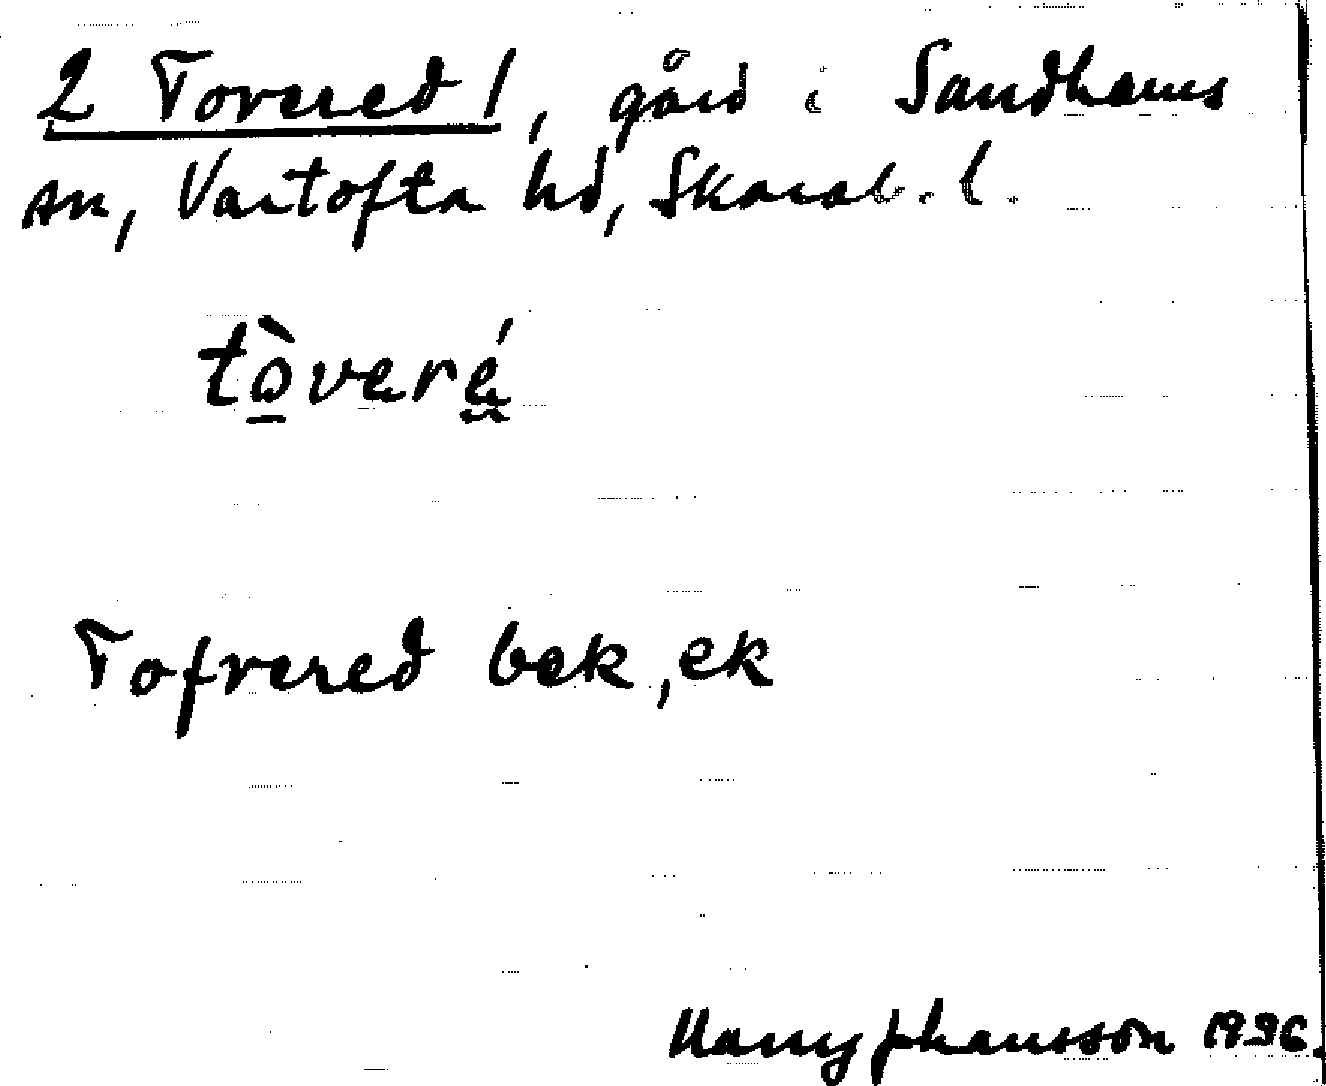 2 Tovered 1, gård i Sandhems
sn, Vartofta hd, Skarab. l.
tòveré
Tofvered bek, ek
Harry Johansson 1936.